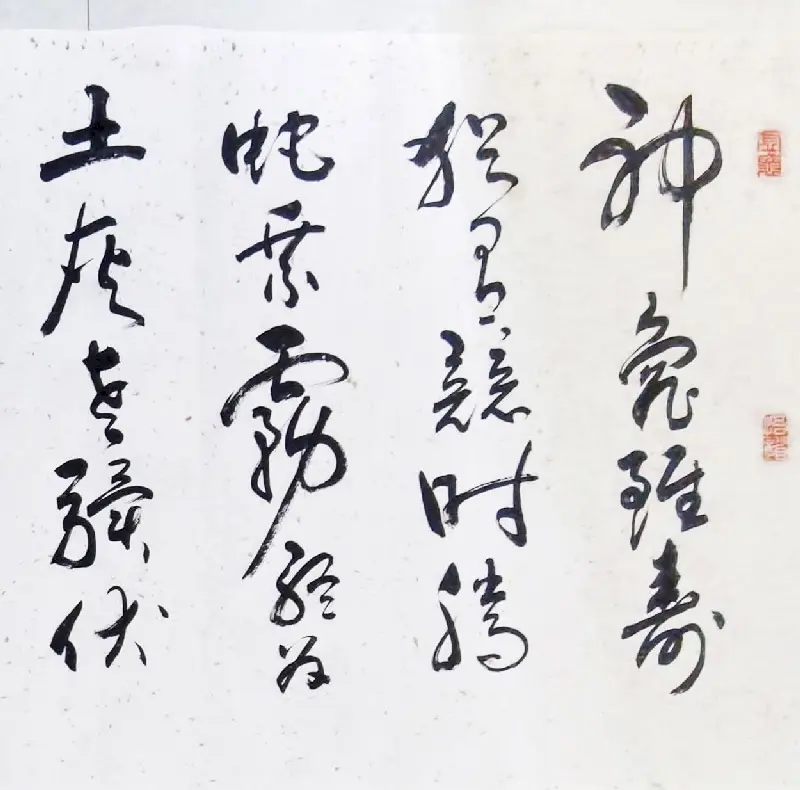 神龜雖壽
猶有競时騰
蛇乘霧終为
土灰老驥伏